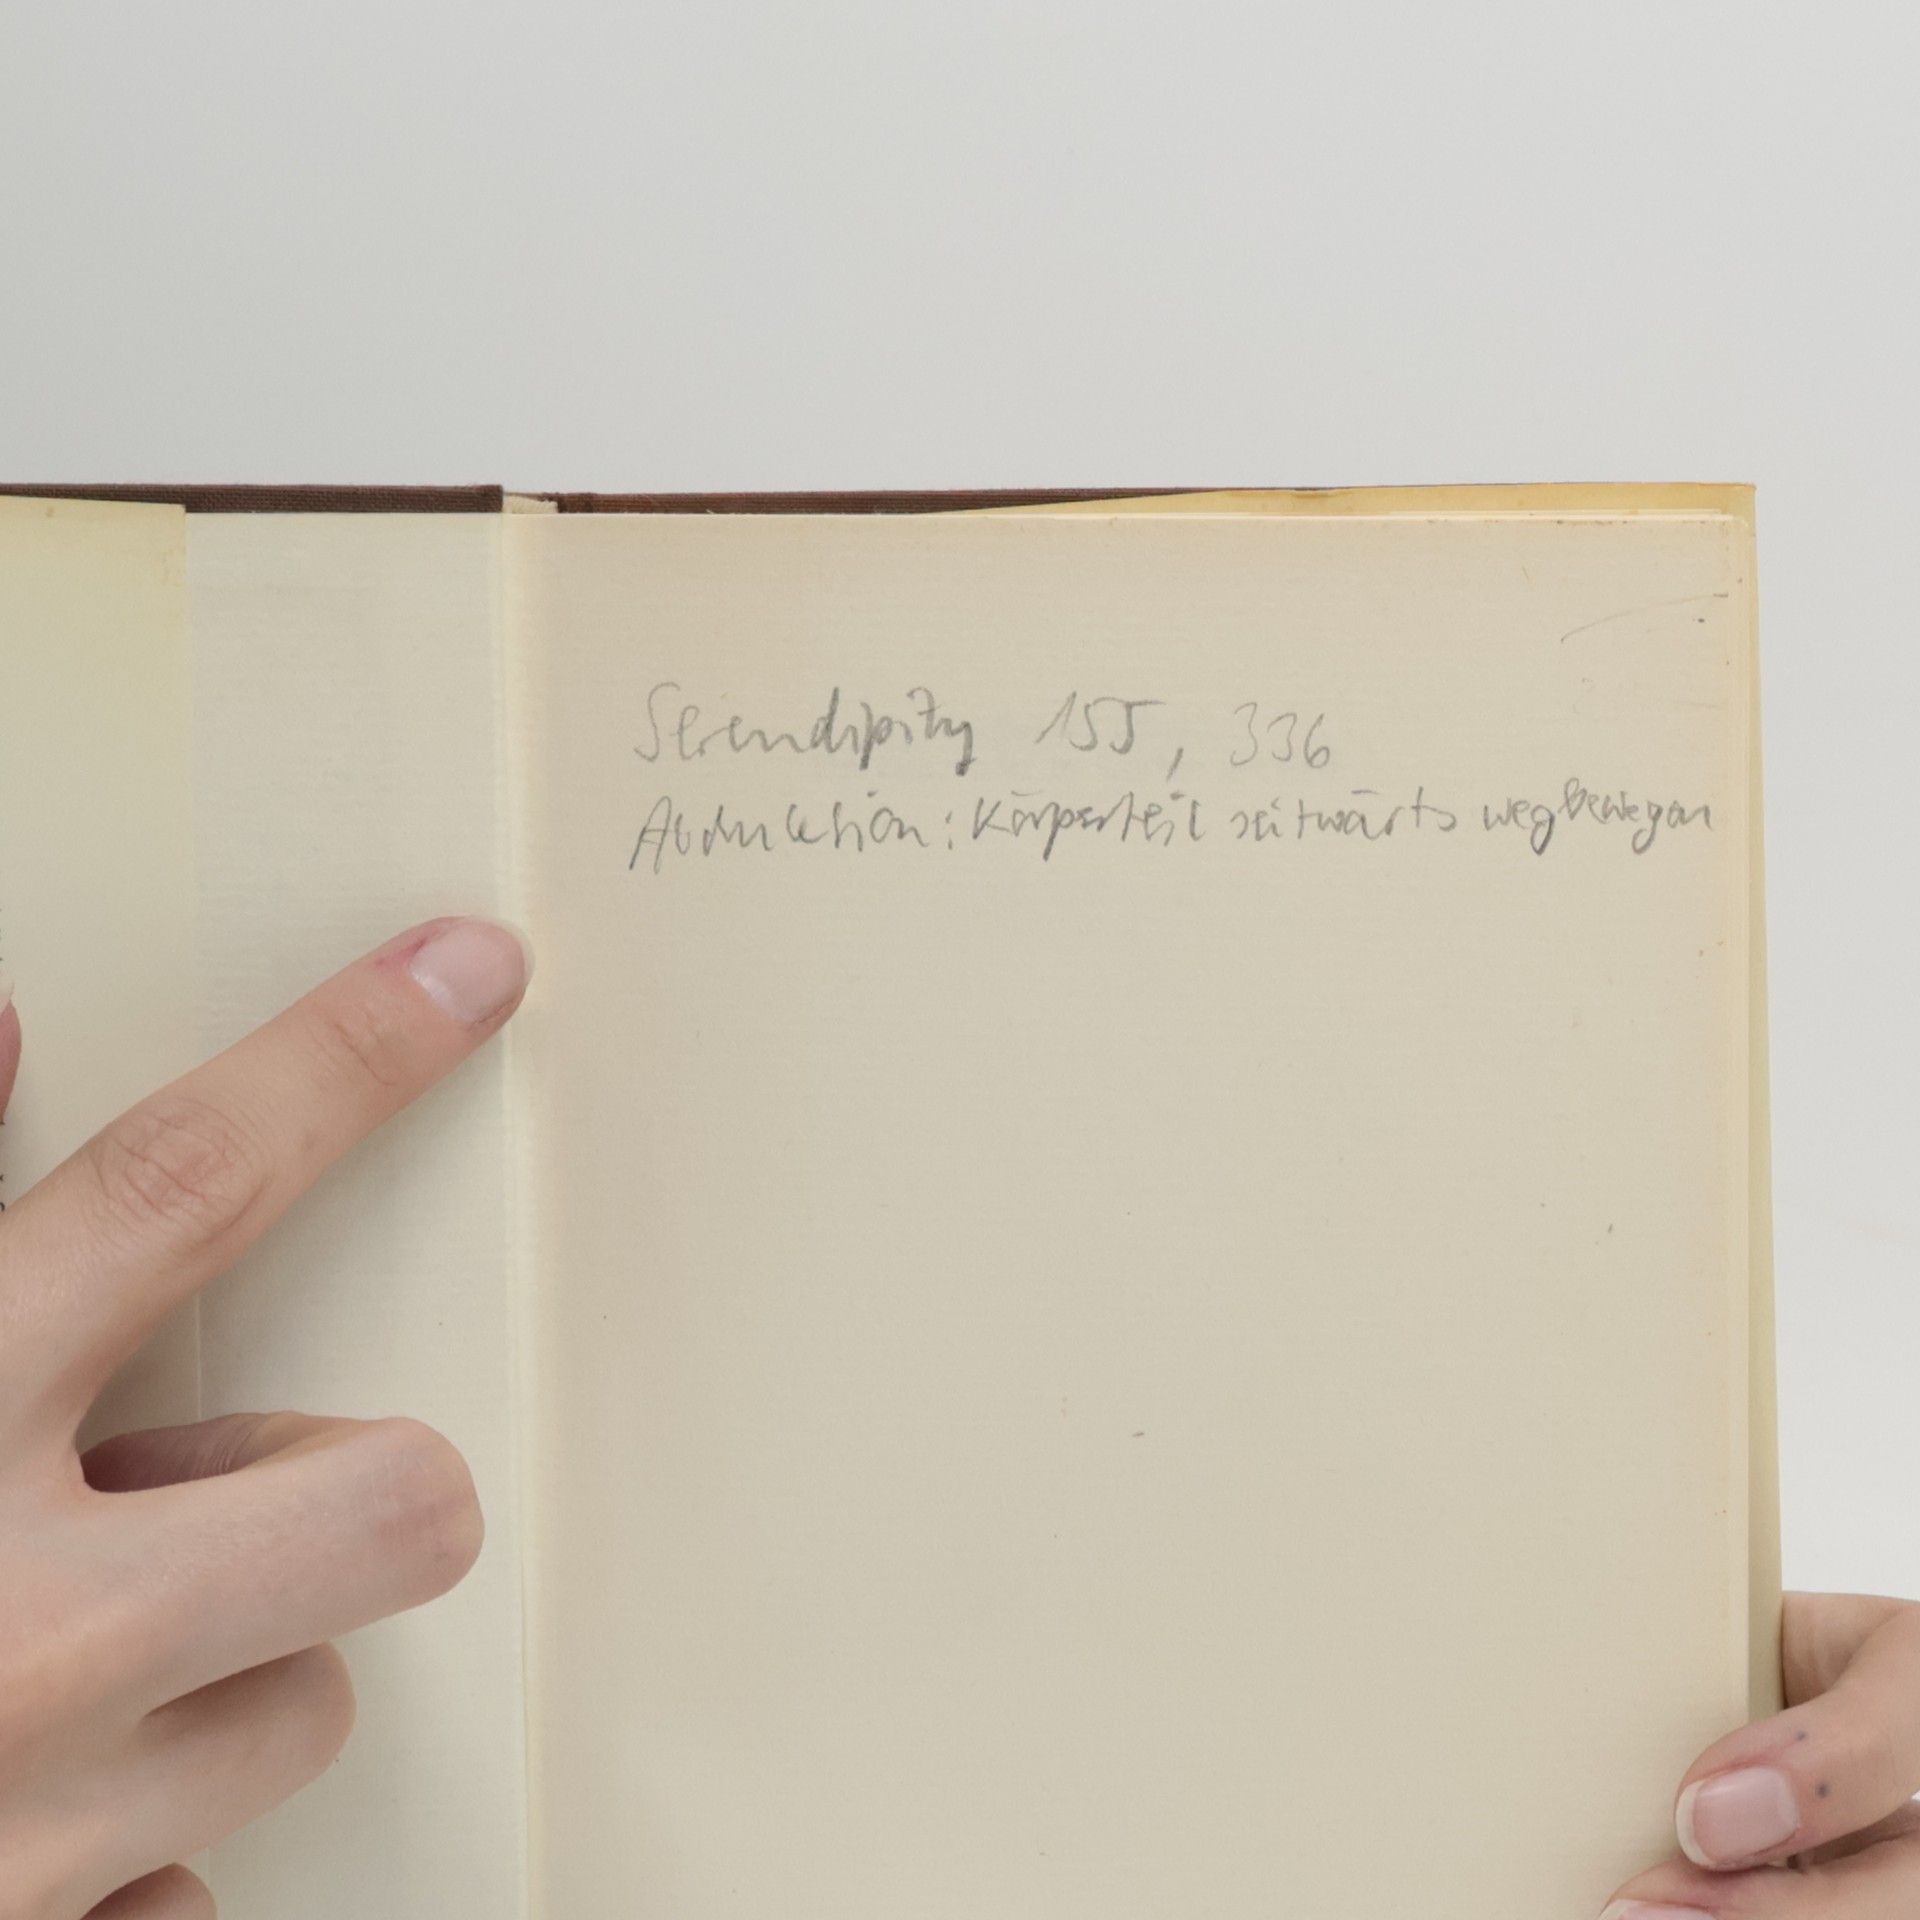 Serendipity 155, 336
Abduktion: Körperteil seitwärts wegbewegen